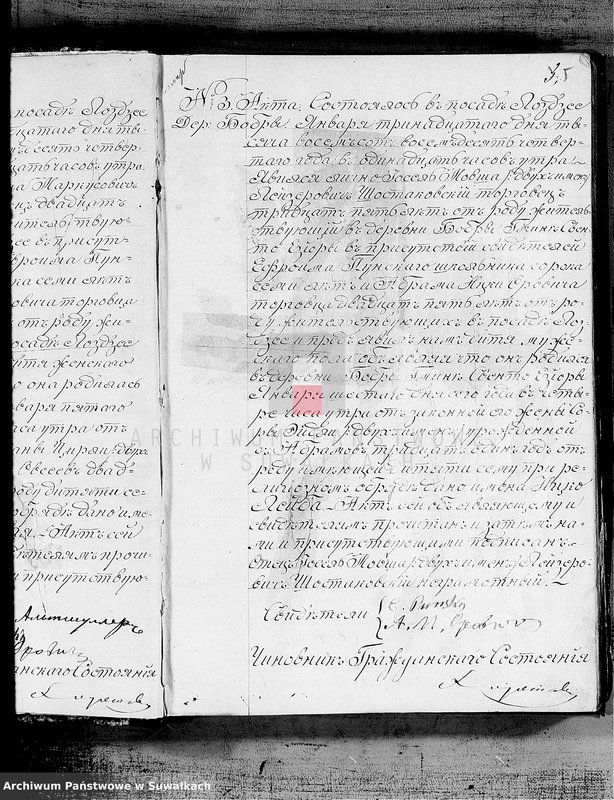 посадѣ Лоздзее
цатаго дня ты-
десято четвер-
цать часовъ утра.
а Маркусовичъ
цъ двадцать
итель ствую-
се въ присут-
фроима Пун-
ка семи лѣтъ
овича торговца
отъ роду жи-
осадѣ Лоздзее
дитя женскаго
о она родилась
варя пятаго
са утра отъ
ны Цирли двухъ
Овсеевъ двад-
роду дитяти се-
обрядѣ дано и ме-
ля. Актъ сей
дѣтелямъ прочи-
и присутствую-
Альтшулеръ
анскаго Состоянія
5
№ 5. Акта. Состоялось въ посадѣ Лоздзее
Дер: Бобры. Января тринадцатаго дня ты-
сяча восемьсотъ восемьдесятъ четвер-
таго года въ одинадцать часовъ утра.
Явился лично Іосель Мовша двухъ именъ
Лейзеровичъ Шостаковскій торговецъ
тридцать пять лѣтъ отъ роду житель-
ствующій въ деревни Бобры Гмины Свен-
то Езіоры въ присутствіи свидѣтелей
Ефроима Пунскаго школьника сорока
семи лѣтъ и Абрама Ицки Оровича
торговца двадцать пять лѣтъ отъ ро-
ду жительствующихъ въ посадѣ Лоз-
дзее и предъявилъ намъ дитя муже-
скаго пола объявляя что онъ родился
въ деревни Бобры Гмины Свенто Езіоры
Января шестаго дня сего года въ четы-
ре часа утра отъ законной его жены Со-
ры Эйдли двухъ именъ урожденной
съ Абрамовъ тридцать одинъ годъ отъ
роду имеющей. Дитяти сему при ре-
лигіозномъ обрядѣ дано имена Ицко
Лейба. Актъ сей объявляющему и
свидѣтелямъ прочитанъ и затѣмъ на-
ми и присутствующими подписанъ.
Отецъ Іосель Мовша двухъ именъ Лейзеро-
вичъ Шостаковскій неграмотный.
Свидѣтели { E. Punsky
A. M.
Чиновникъ Гражданскаго Состоянія
ARCHIWUM PAŃSTWOWE
W SUWAŁKACH
Archiwum Państwowe w Suwałkach